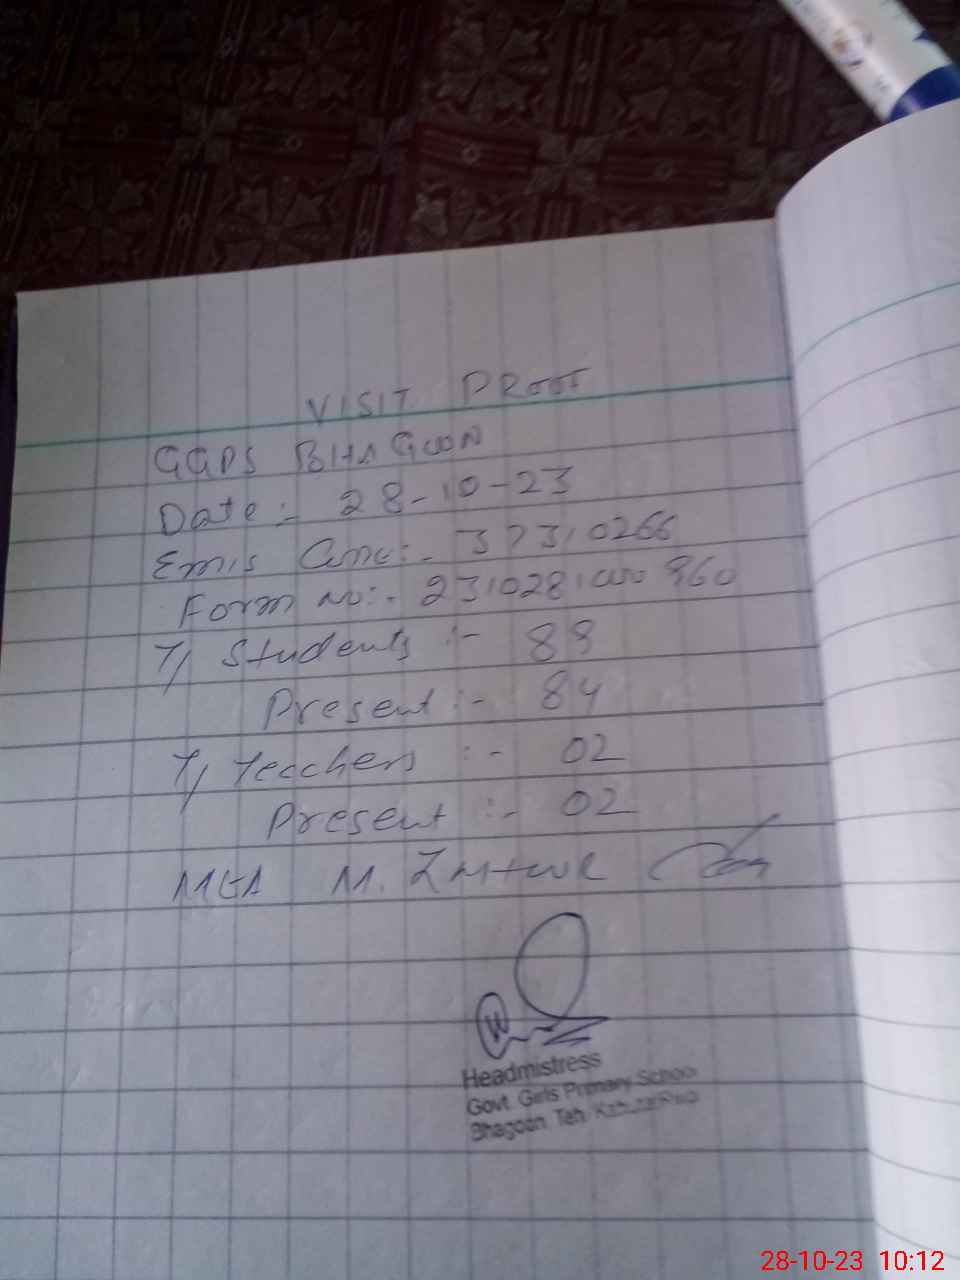 VISIT PROOF
GGPS BHAGOON
Date :- 28-10-23
Emis Code:- 37310266
Form no:- 231028100960
T/ Students :- 89
Present :- 84
T/ Teachers :- 02
Present :- 02
MEA M.
Headmistress
Govt. Girls Primary School
Bhagoon Teh. Kahuta Rwp
28-10-23 10:12